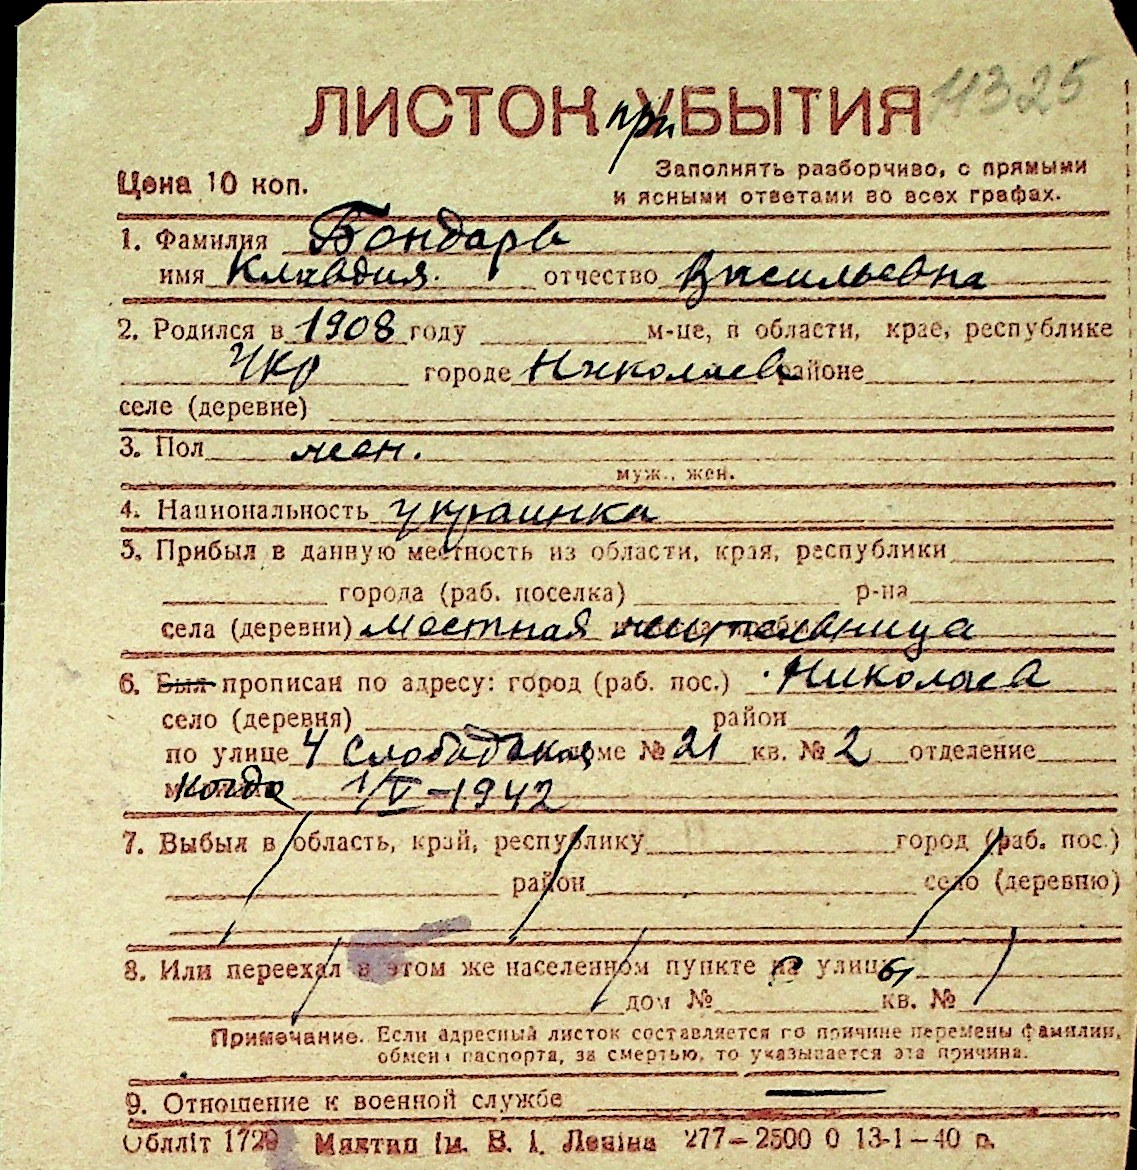 11325
ЛИСТОК при УБЫТИЯ
Цена 10 коп.
Заполнять разборчиво, с прямыми
и ясными ответами во всех графах.
1. Фамилия Бондарь
имя Клавдия. отчество Васильевна
2. Родился в 1908 году м-це, в области, крае, республике
Укр городе Николаев районе
селе (деревне)
3. Пол жен.
муж., жен.
4. Национальность украинка
5. Прибыл в данную местность из области, края, республики
города (раб. поселка) р-на
села (деревни) местная жительница
6. Был прописан по адресу: город (раб. пос.) Николаев
село (деревня) район
по улице 4 Слободская доме № 21 кв. № 2 отделение
когда 1/V-1942
7. Выбыл в область, край, республику город (раб. пос.)
район село (деревню)
8. Или переехал в этом же населенном пункте на улицу
дом № кв. №
Примечание. Если адресный листок составляется по причине перемены фамилии,
обмена паспорта, за смертью, то указывается эта причина.
9. Отношение к военной службе —
Обллiт 1729 Миктип iм. В. I. Ленiна 277—2500 0 13-1—40 р.